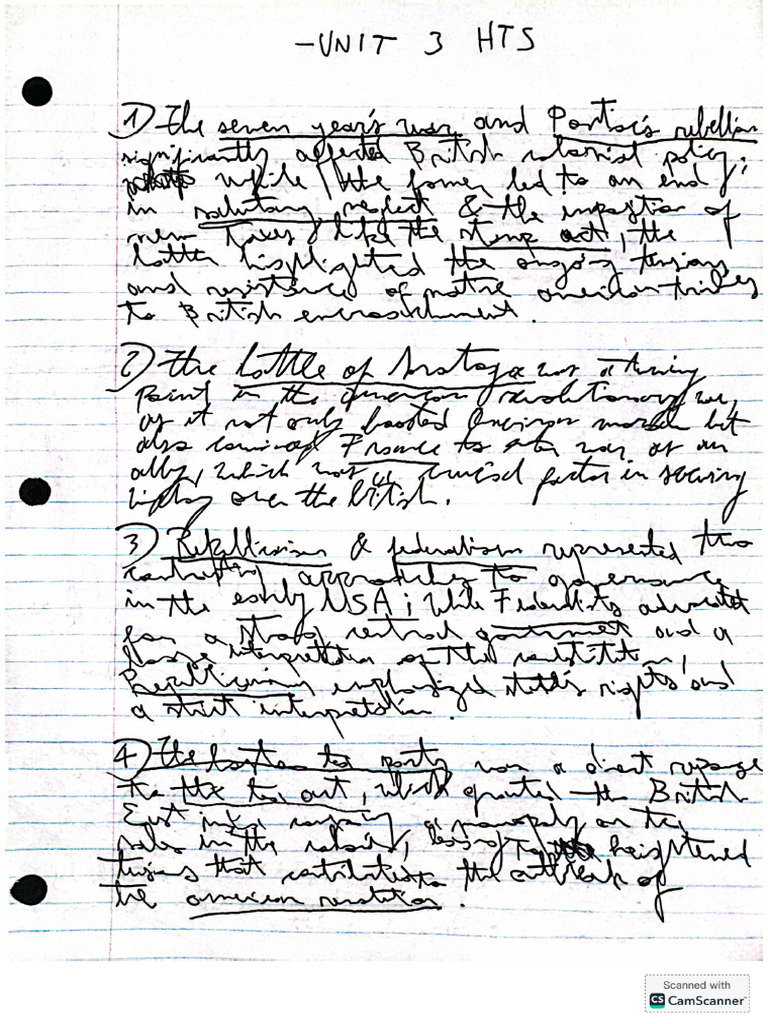 -UNIT 3 HTS
1) The seven year's war and Pontiac's rebellion
significantly affected British colonial policy;
while the former led to an end
in salutary neglect & the imposition of
new taxes like the stamp act, the
latter highlighted the ongoing tensions
and resistence of native american tribes
to British encroachment.
2) The battle of Saratoga was a turning
point in the american revolutionary war,
as it not only boosted American morale but
also convinced France to enter war as an
ally, which was a crucial factor in securing
victory over the british.
3) Republicanism & federalism represented two
contrasting approaches to governance
in the early USA; while Federalists advocated
for a strong central government and a
loose interpretation of the constitution,
Republicanism emphasized state's rights and
a strict interpretation.
4) The boston tea party was a direct response
to the tea act, which granted the British
East india company a monopoly on tea
sales in the colonies, leading to heightened
tensions that contributed to the outbreak of
the american revolution.
Scanned with
CS CamScanner